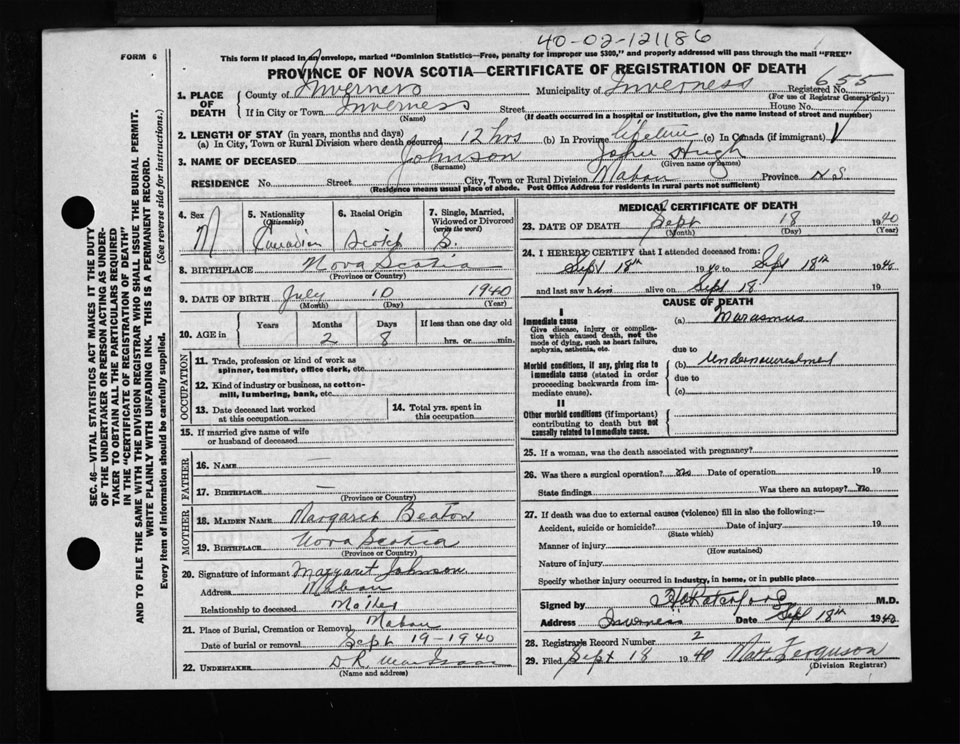 40-02-121186
FORM 6
This form if placed in an envelope, marked "Dominion Statistics—Free, penalty for improper use $300," and properly addressed will pass through the mail "FREE"
PROVINCE OF NOVA SCOTIA—CERTIFICATE OF REGISTRATION OF DEATH
1. PLACE OF DEATH County of Inverness Municipality of Inverness Registered No. 655
(For use of Registrar General only)
If in City or Town Inverness Street House No.
(Name) (If death occurred in a hospital or institution, give the name instead of street and number)
2. LENGTH OF STAY (in years, months and days)
(a) In City, Town or Rural Division where death occurred 12 hrs (b) In Province lifetime (c) In Canada (if immigrant)
3. NAME OF DECEASED Johnson John Hugh
(Surname) (Given name or names)
RESIDENCE No. Street City, Town or Rural Division Mabou Province N S
(Residence means usual place of abode. Post Office Address for residents in rural parts not sufficient)
SEC. 46—VITAL STATISTICS ACT MAKES IT THE DUTY
OF THE UNDERTAKER OR PERSON ACTING AS UNDER-
TAKER TO OBTAIN ALL THE PARTICULARS REQUIRED
IN THE "CERTIFICATE OF REGISTRATION OF DEATH"
AND TO FILE THE SAME WITH THE DIVISION REGISTRAR WHO SHALL ISSUE THE BURIAL PERMIT.
WRITE PLAINLY WITH UNFADING INK. THIS IS A PERMANENT RECORD.
Every item of information should be carefully supplied. (See reverse side for instructions.)
4. Sex M
5. Nationality (Citizenship) Canadian
6. Racial Origin Scotch
7. Single, Married, Widowed or Divorced (write the word) S.
8. BIRTHPLACE Nova Scotia
(Province or Country)
9. DATE OF BIRTH July 10 1940
(Month) (Day) (Year)
10. AGE in Years Months 2 Days 8 If less than one day old
hrs. or min.
OCCUPATION
11. Trade, profession or kind of work as
spinner, teamster, office clerk, etc.
12. Kind of industry or business, as cotton-
mill, lumbering, bank, etc.
13. Date deceased last worked
at this occupation
14. Total yrs. spent in
this occupation
15. If married give name of wife
or husband of deceased
FATHER
16. NAME —
17. BIRTHPLACE —
(Province or Country)
MOTHER
18. MAIDEN NAME Margaret Beaton
19. BIRTHPLACE Nova Scotia
(Province or Country)
20. Signature of informant Margaret Johnson
Address Mabou
Relationship to deceased Mother
21. Place of Burial, Cremation or Removal Mabou
Date of burial or removal Sept 19-1940
22. UNDERTAKER D R MacIsaac
(Name and address)
MEDICAL CERTIFICATE OF DEATH
23. DATE OF DEATH Sept 18 1940
(Month) (Day) (Year)
24. I HEREBY CERTIFY that I attended deceased from:
Sept 18th 1940 to Sept 18th 1940
and last saw him alive on Sept 18 19
CAUSE OF DEATH
I
Immediate cause (a) Marasmus
Give disease, injury or complica-
tion which caused death, not the
mode of dying, such as heart failure,
asphyxia, asthenia, etc.
due to
Morbid conditions, if any, giving rise to (b) Undernourishment
immediate cause (stated in order due to
proceeding backwards from im-
mediate cause). (c)
II
Other morbid conditions (if important)
contributing to death but not
causally related to immediate cause.
25. If a woman, was the death associated with pregnancy?
26. Was there a surgical operation? No Date of operation 19
State findings Was there an autopsy? No
27. If death was due to external causes (violence) fill in also the following:—
Accident, suicide or homicide? Date of injury 19
(State which)
Manner of injury
(How sustained)
Nature of injury
Specify whether injury occurred in industry, in home, or in public place
Signed by M.D.
Address Inverness Date Sept 18th 1940
28. Registrar's Record Number 2
29. Filed Sept 18 1940 Matt. Ferguson
(Division Registrar)